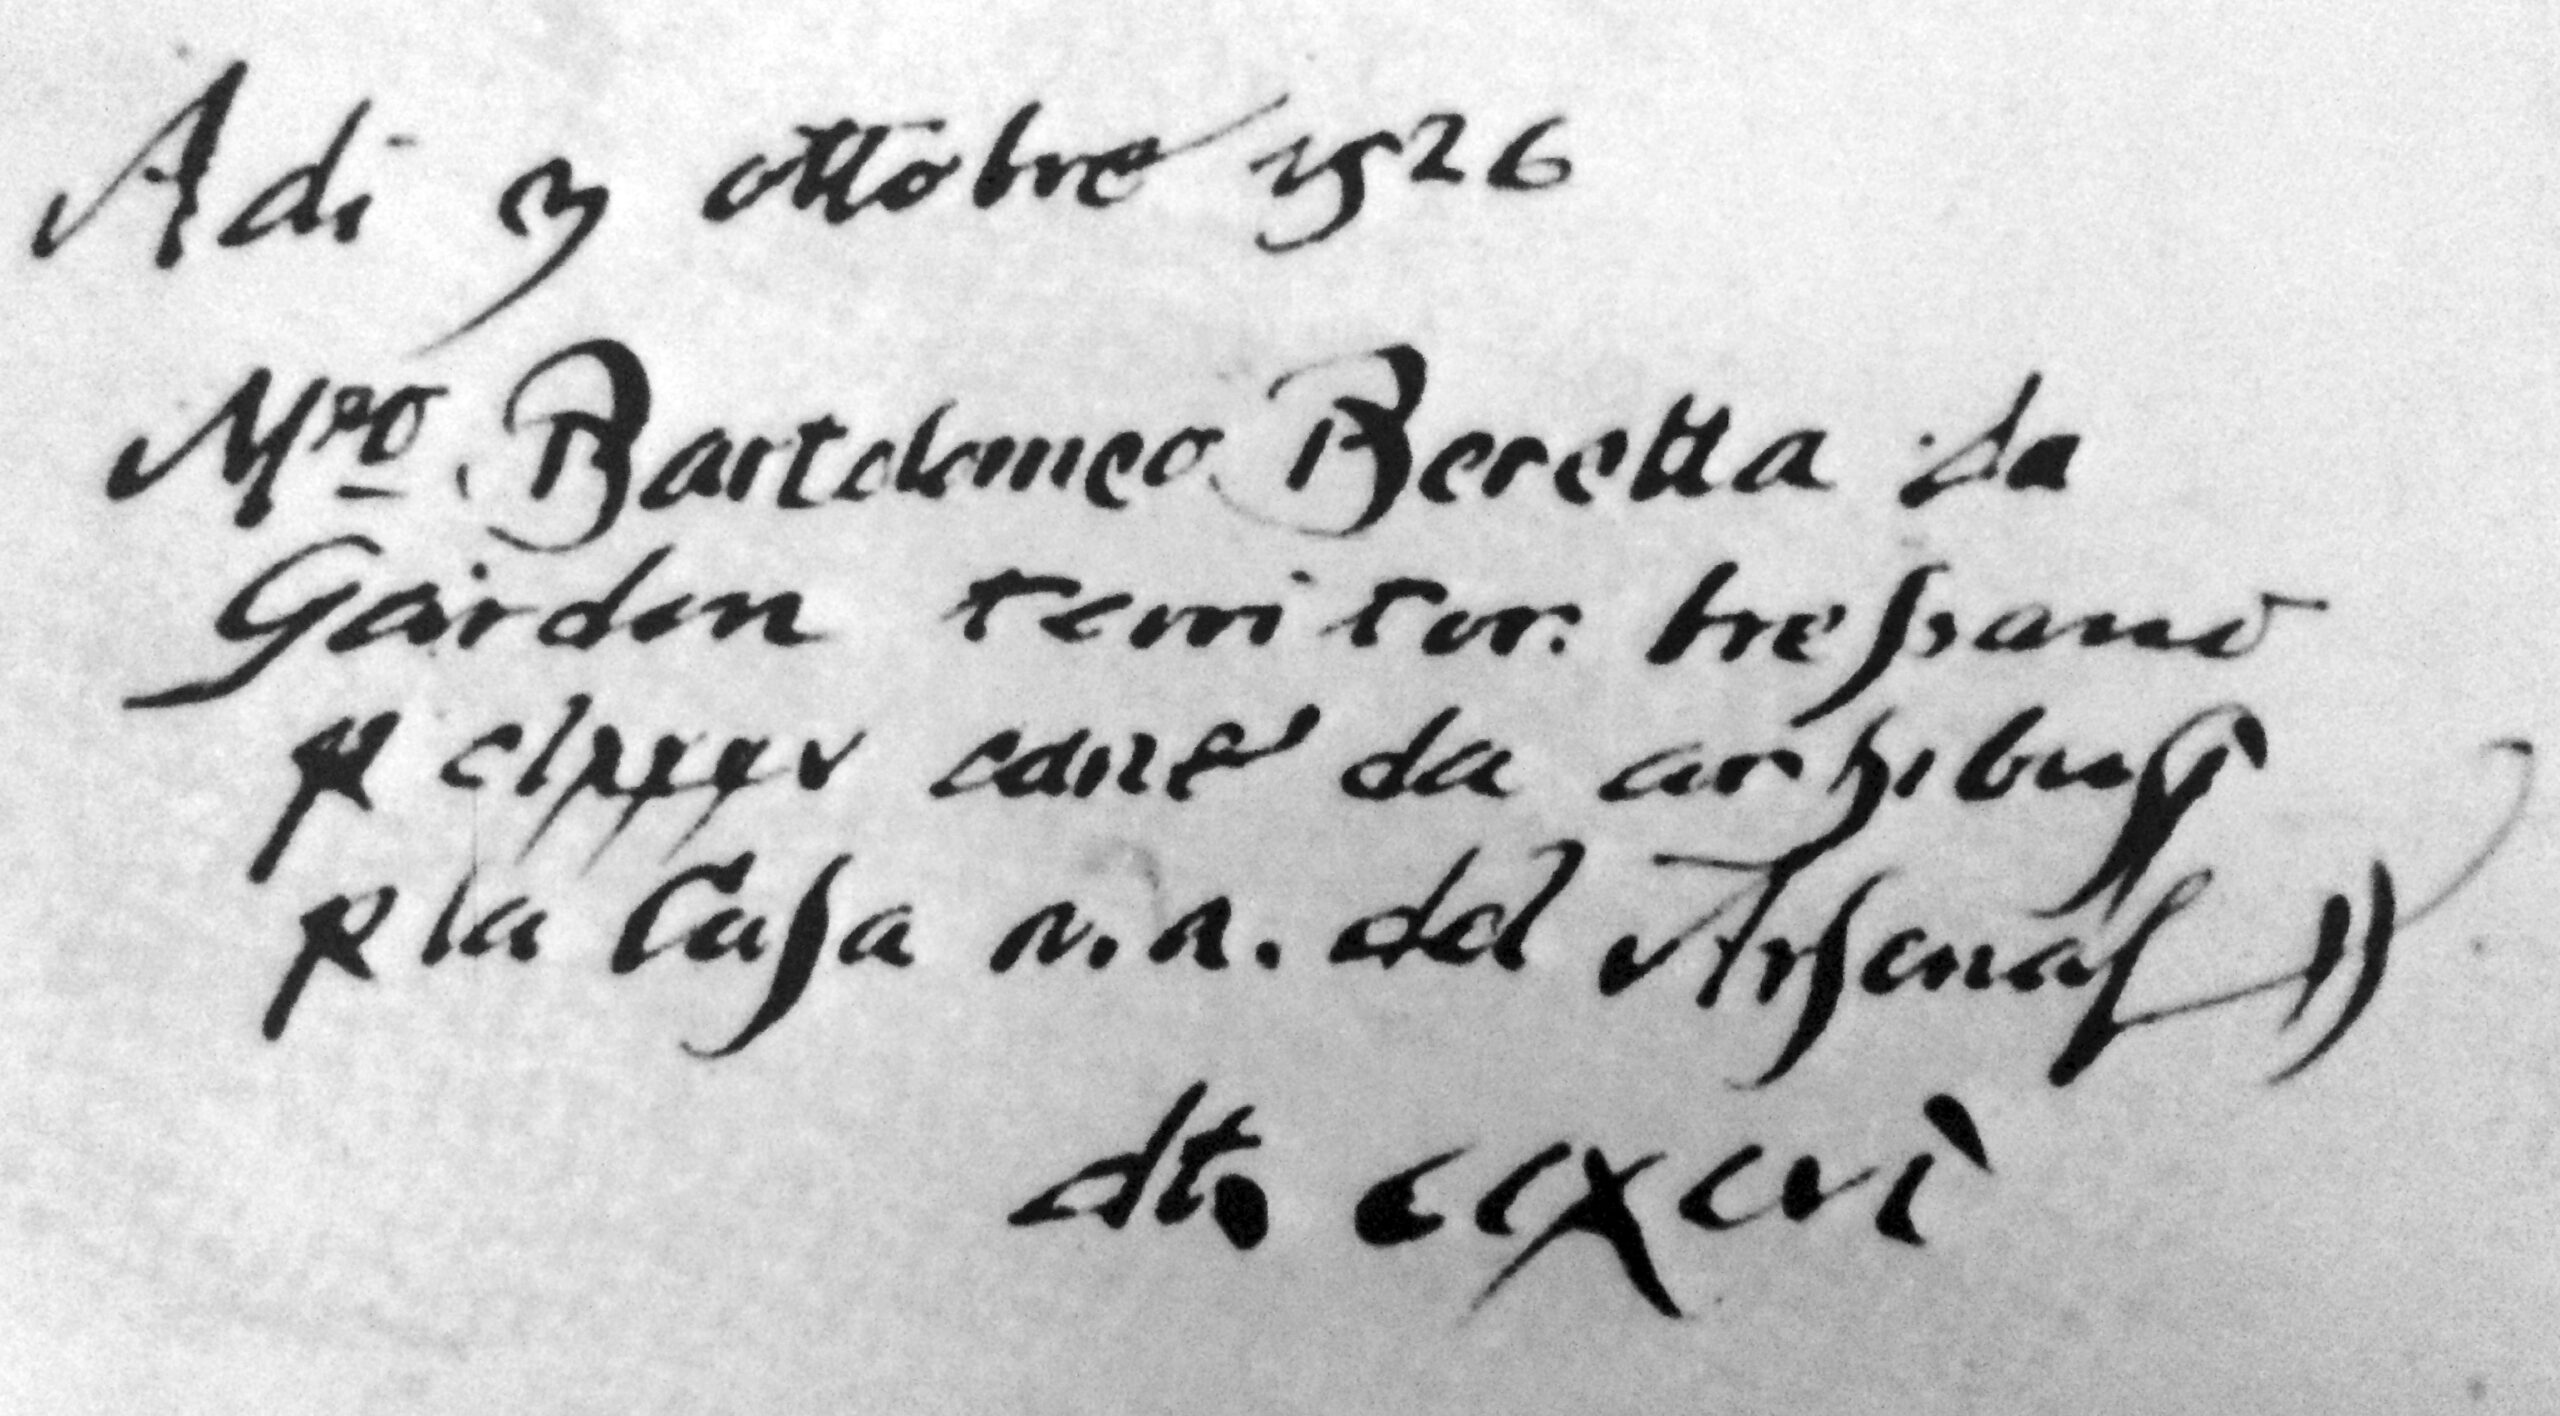 Adi 3 ottobre 1526
Mro Bartolomeo Beretta da
Gardon territor. bressano
p clxxxv cane da archibusi
p la Casa n.n. del Arsenal //
dt. ccxcvi